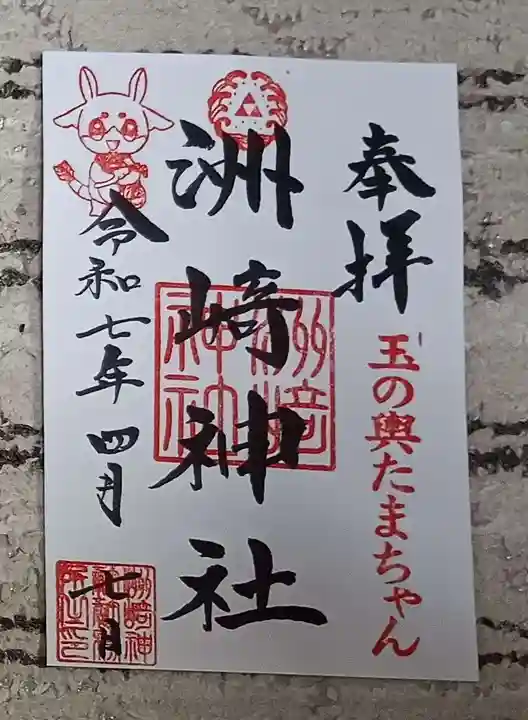 奉拝
玉の輿たまちゃん
洲崎神社
洲崎神社
令和七年四月
七日